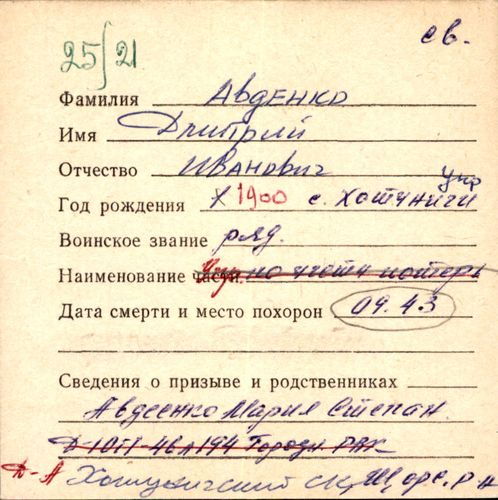 св.
25/21
Фамилия Авденко
Имя Дмитрий
Отчество Иванович
укр
Год рождения Х 1900 с. Хотуничи
Воинское звание ряд.
Наименование части. Упр. по учету потерь
Дата смерти и место похорон 09.43
Сведения о призыве и родственниках
Авдеенко Мария Степан.
Городн. РВК
Д-А Хотуничский с/с, Щорс. р-н